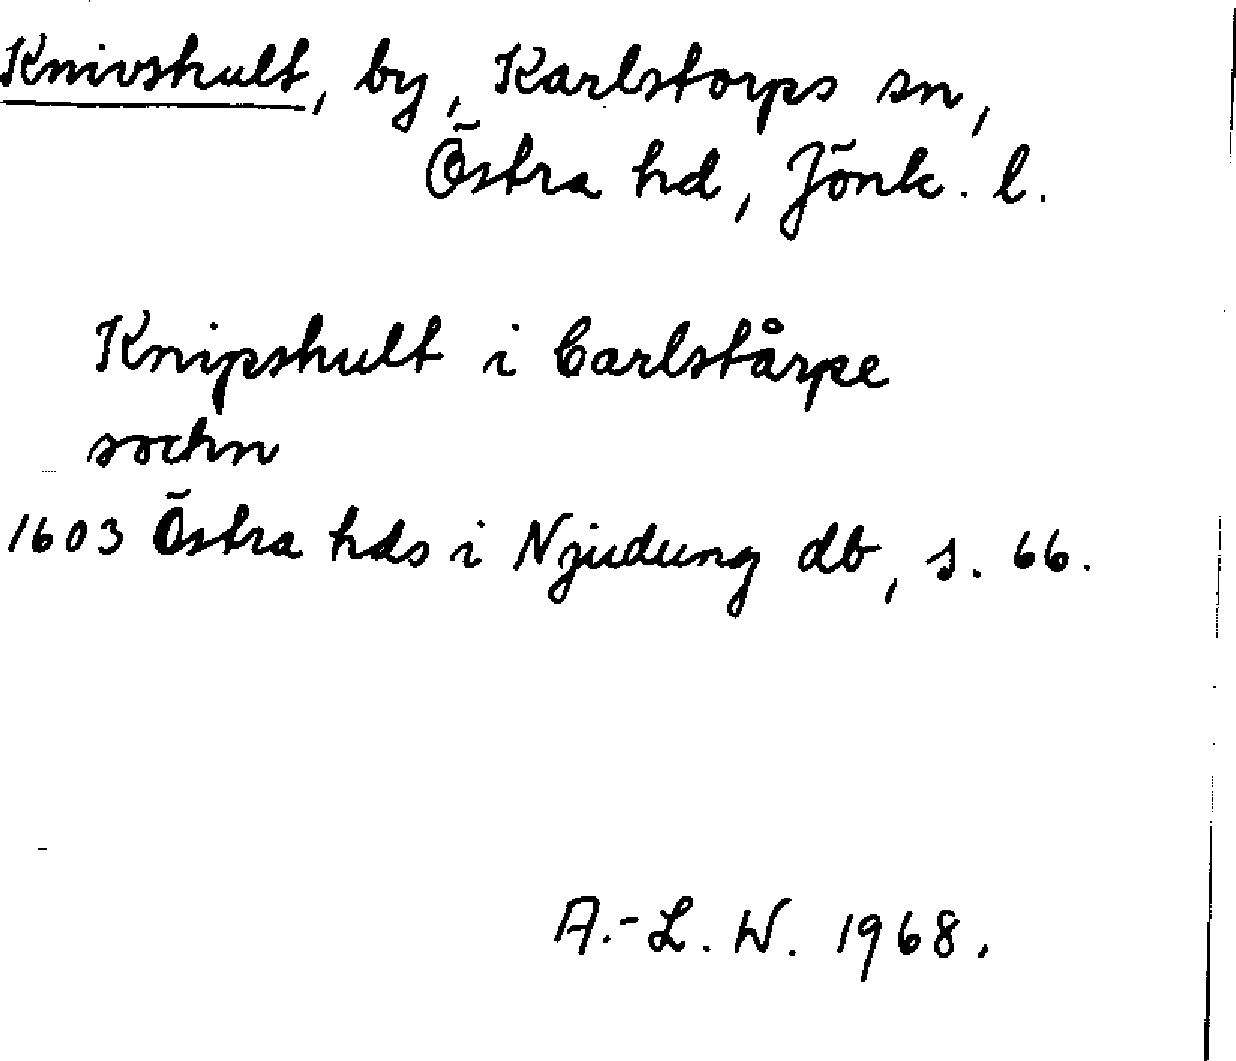 Knivshult, by, Karlstorps sn,
Östra hd, Jönk. l.
Knipshult i Carlstårpe
sochn
1603 Östra hds i Njudung db, s. 66.
A.-L. W. 1968.